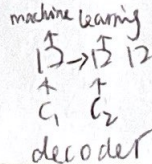 machine learning
13 → 12 12
C1 C2
decoder